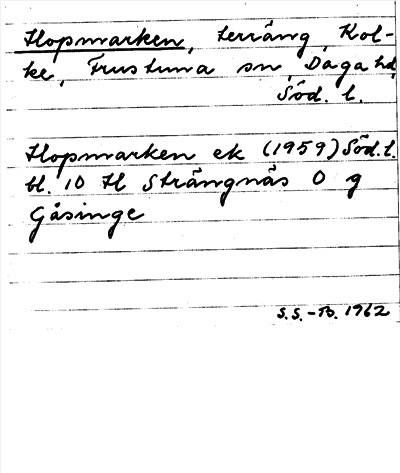 Hopmarken, terräng, Kol-
ke, Frustuna sn, Daga hd,
Söd. l.
Hopmarken ek (1959) Söd. l.
bl. 10 H Strängnäs O g
Gåsinge
S.S.-B. 1962